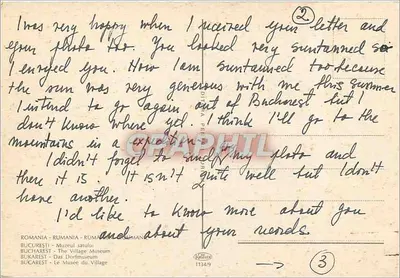 ②
I was very happy when I received your letter and
your photo too. You looked very suntanned so
I envyed you. Now I am suntanned too because
the sun was very generous with me this summer
I intend to go again out of Bucharest but I
don't know where yet. I think I'll go to the
mountains in a expedition.
I didn't forget to send my photo and
there it is. It isn't quite well but I don't
have another.
I'd like to know more about you
and about your records
→ ③
CPAPHIL
ROMANIA - RUMANIA - RUMANIA
BUCUREȘTI - Muzeul satului
BUCHAREST - The Village Museum
BUKAREST - Das Dorfmuseum
BUCAREST - Le Musée du Village